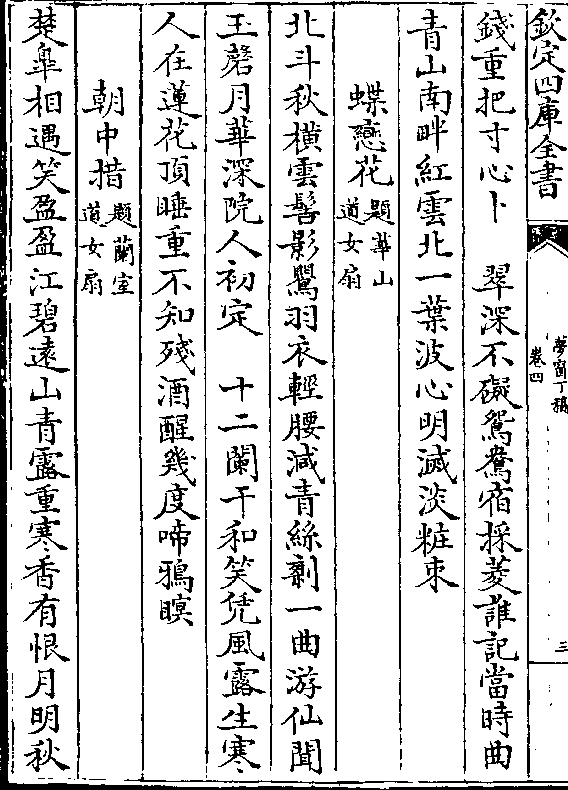 欽定四庫全書
夢窗丁稿
卷四
三
錢重把寸心卜　翠深不礙鴛鴦宿採菱誰記當時曲
青山南畔紅雲北一葉波心明滅淡粧束
蝶戀花題華山道女扇
北斗秋橫雲髻影鶯羽衣輕腰減青絲剩一曲游仙聞
玉磬月華深院人初定　十二闌干和笑凭風露生寒
人在蓮花頂睡重不知殘酒醒幾度啼鴉暝
朝中措題蘭室道女扇
楚臯相遇笑盈盈江碧遠山青露重寒香有恨月明秋